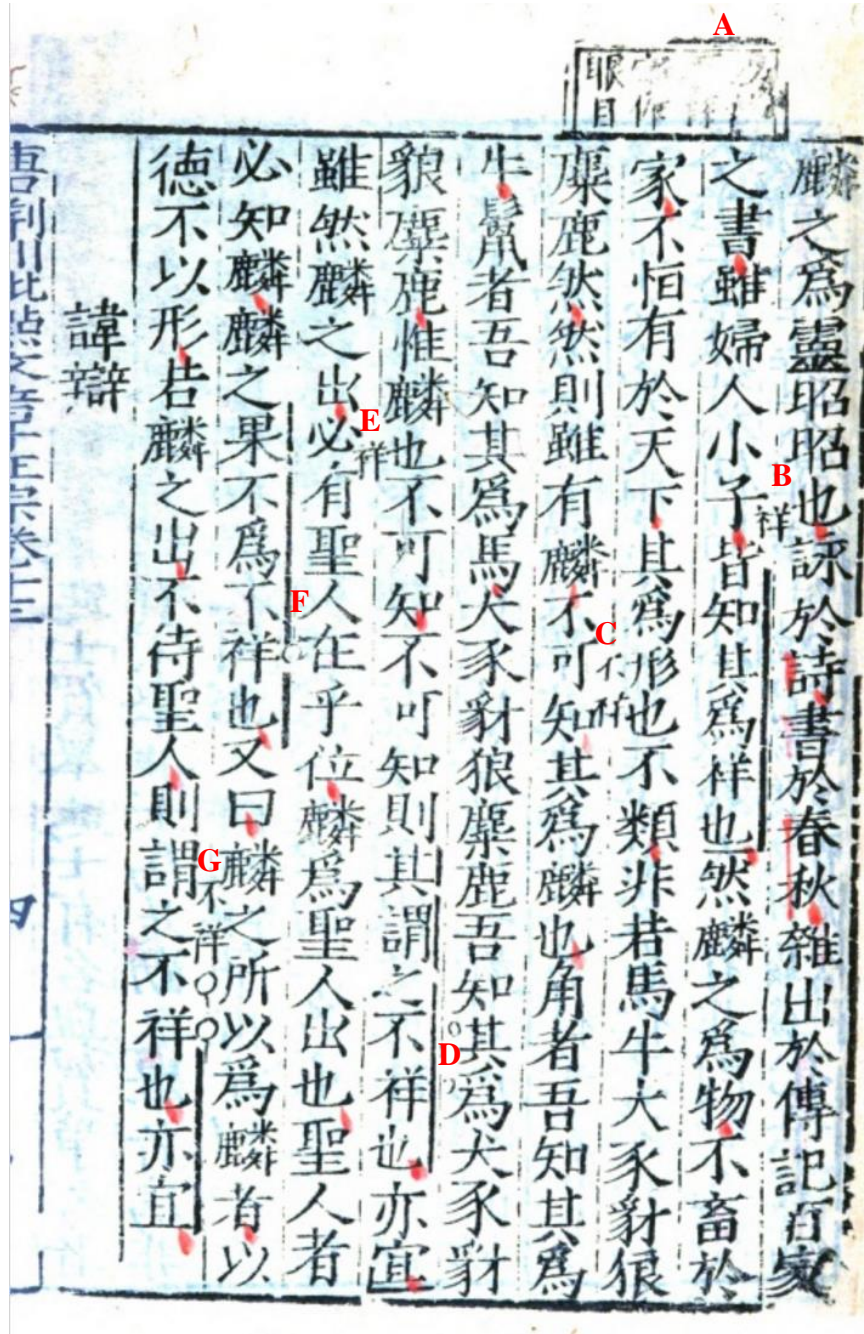 A
眼目
麟之爲靈昭昭也詠於詩書於春秋雜出於傳記百家
B
祥
之書雖婦人小子皆知其爲祥也然麟之爲物不畜於
家不恒有於天下其爲形也不類非若馬牛犬豕豺狼
C
不祥
麋鹿然然則雖有麟不可知其爲麟也角者吾知其爲
牛鬣者吾知其爲馬犬豕豺狼麋鹿吾知其爲犬豕豺
D
狼麋鹿惟麟也不可知不可知則其謂之不祥也亦宜
E
祥
雖然麟之出必有聖人在乎位麟爲聖人出也聖人者
F
必知麟麟之果不爲不祥也又曰麟之所以爲麟者以
G
不祥
德不以形若麟之出不待聖人則謂之不祥也亦宜
諱辯
唐荊川批點文章正宗卷十三
四